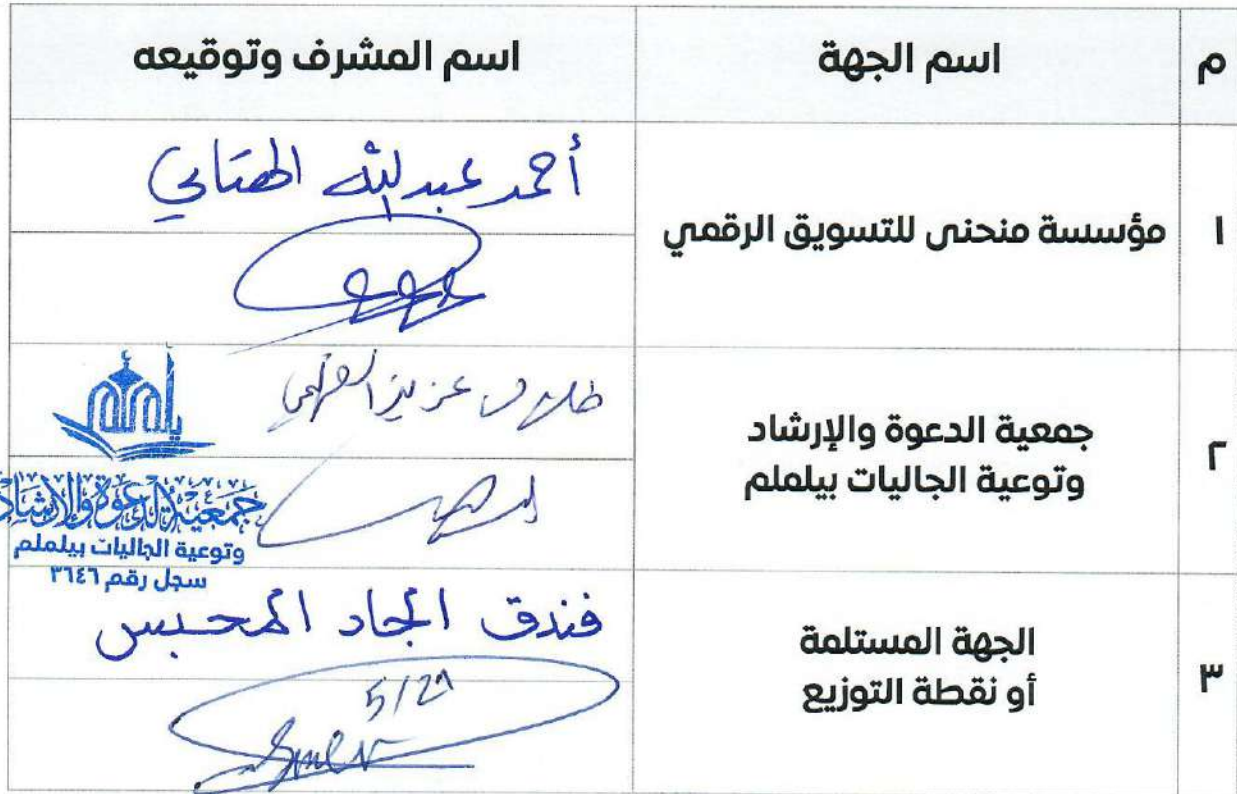 م اسم الجهة اسم المشرف وتوقيعه
١ مؤسسة منحنى للتسويق الرقمي
أحمد عبدالله
٢ جمعية الدعوة والإرشاد
وتوعية الجاليات بيلملم
عزيز
يلملم
جمعية الدعوة والإرشاد
وتوعية الجاليات بيلملم
سجل رقم ٣٦٤٦
٣ الجهة المستلمة
أو نقطة التوزيع
فندق الجاد المحبس
5/29